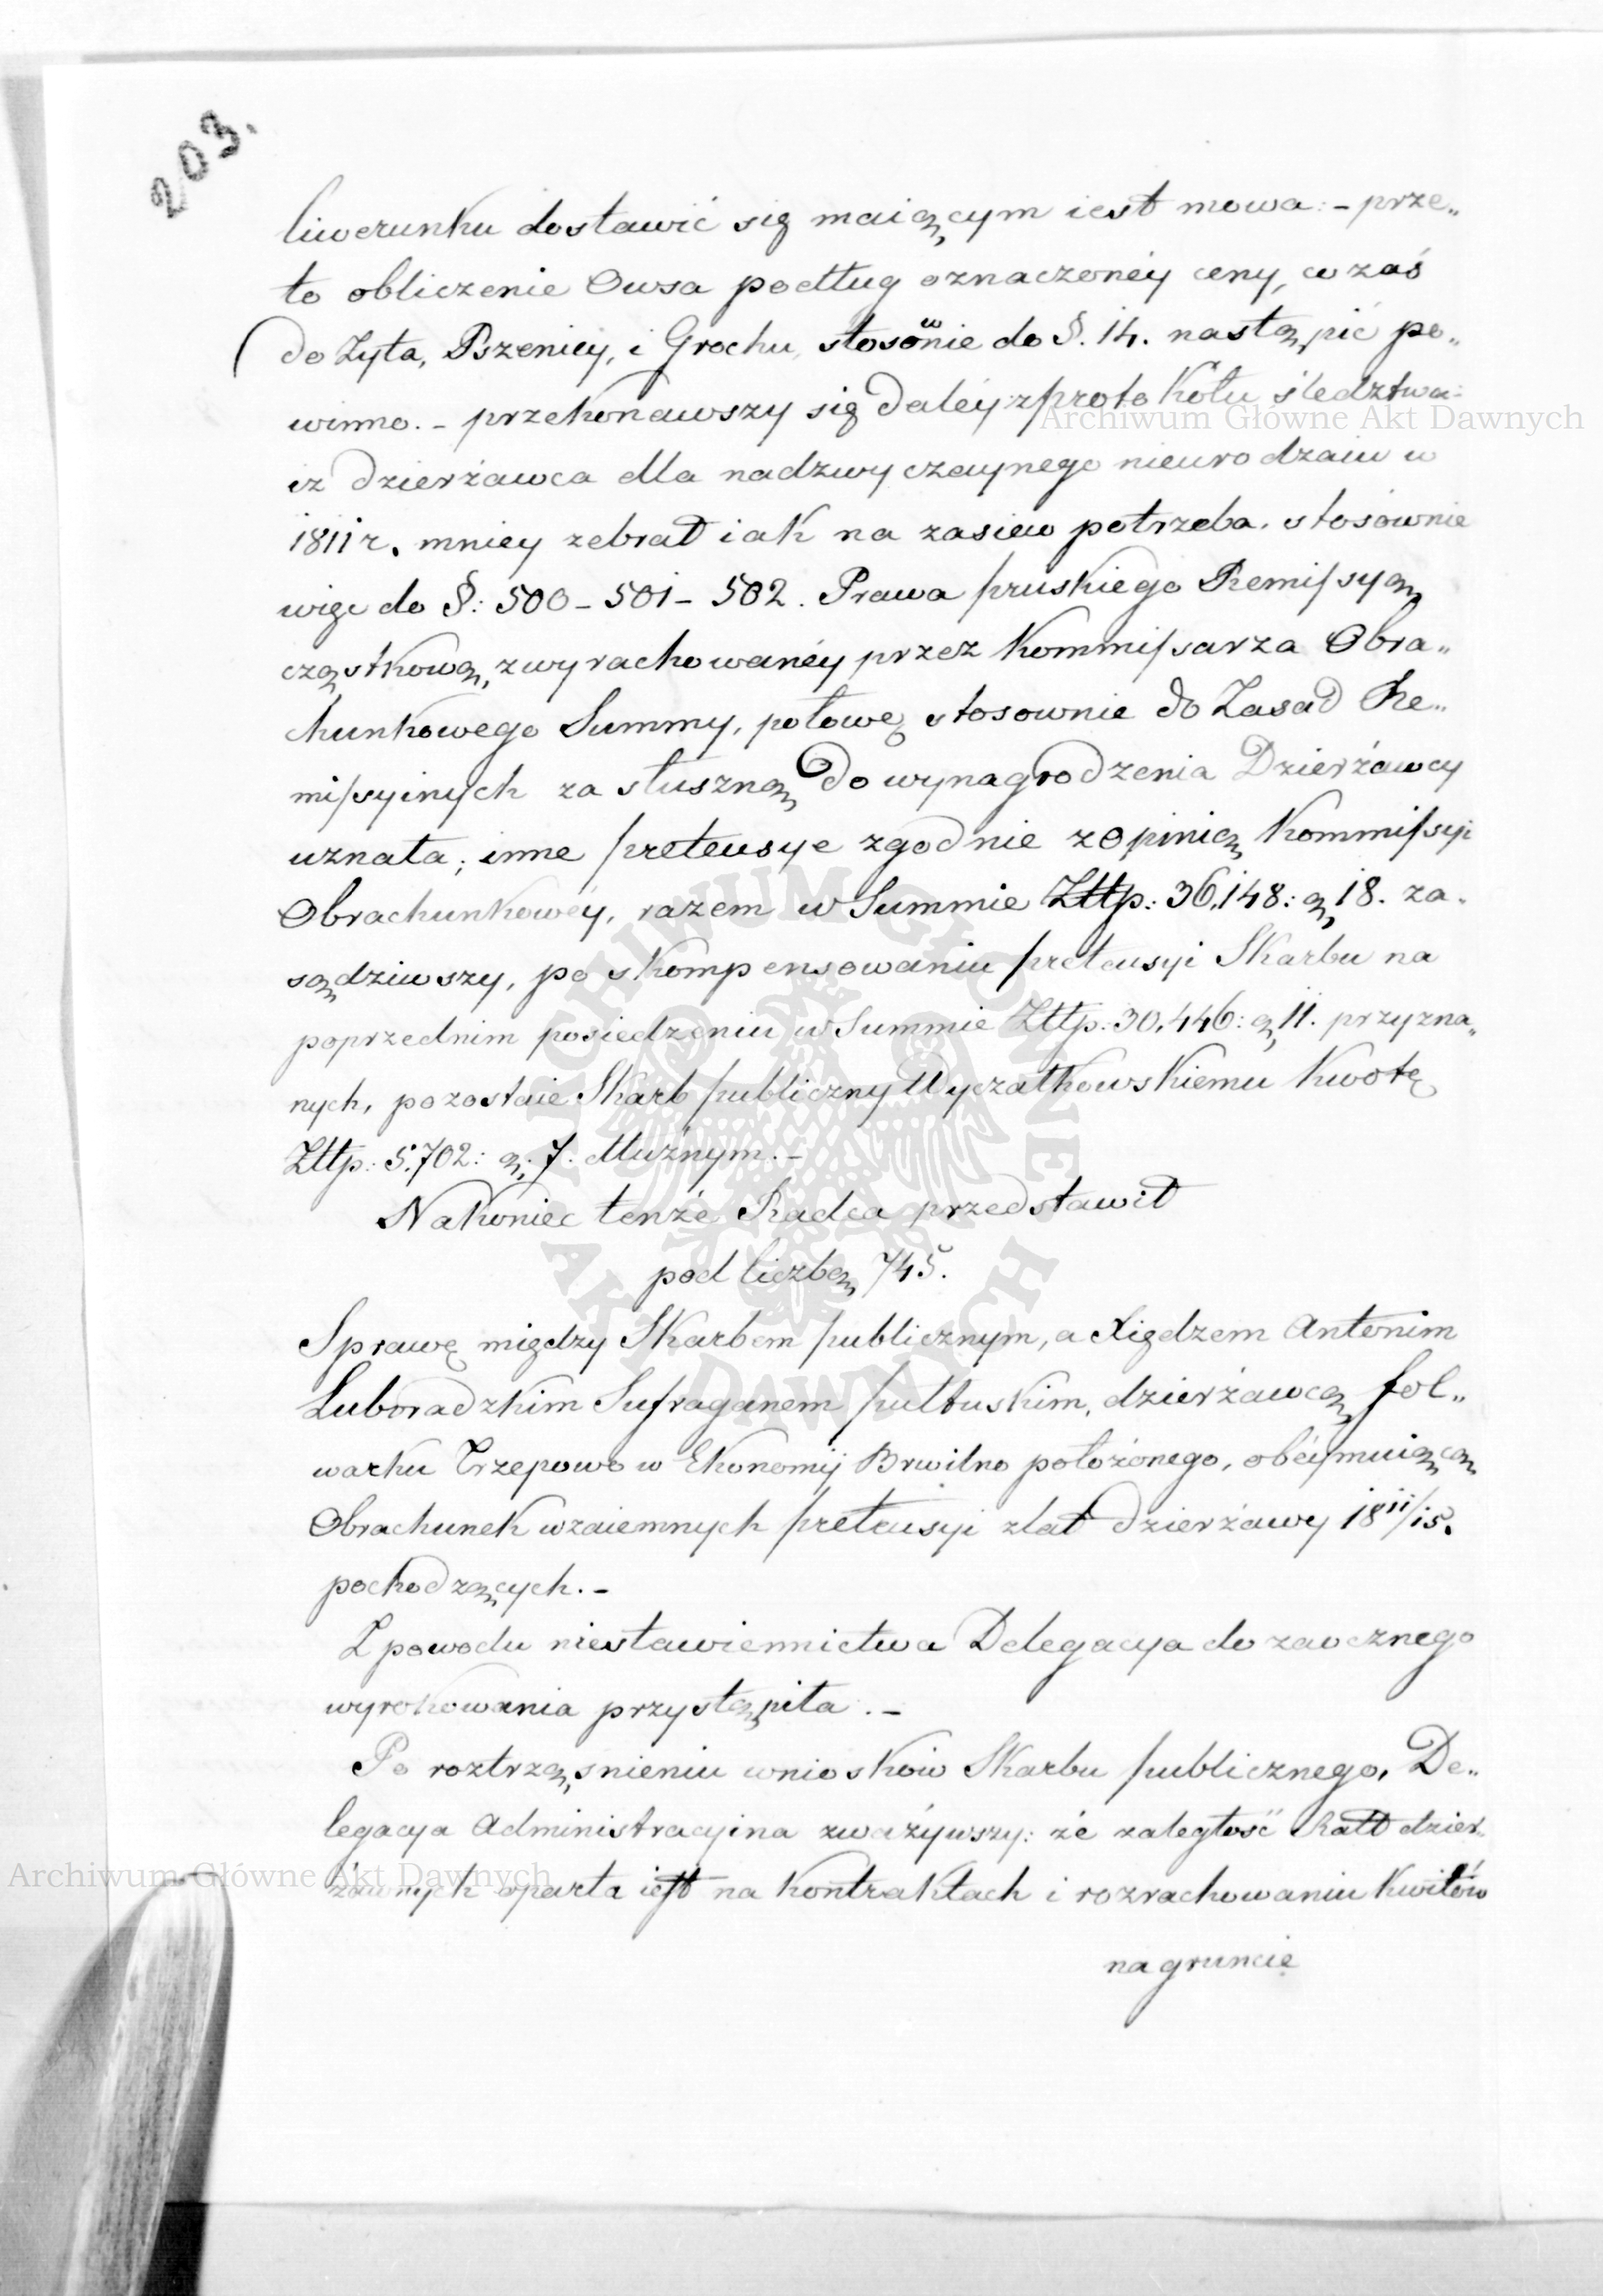 203.
liwerunku dostawić się maiącym iest mowa: - prze„
to obliczenie Owsa podług oznaczonéy ceny, co zaś
do Żyta, Pszenicy, i Grochu, stosównie do §. 14. nastąpić po„
winno. - przekonawszy się daléy z protokółu śledztwa:
iż dzierżawca dla nadzwyczaynego nieurodzaiu w
1811 r. mniey zebrał iak na zasiew potrzeba. stosównie
więc do §: 500 - 501 - 502. Prawa pruskiego Remissyą
cząstkową, z wyrachowanéy przez Kommissarza Obra„
chunkowego Summy, połowę stosownie do Zasad Re„
missyinych za słuszną do wynagrodzenia Dzierżawcy
uznała; inne pretensye zgodnie z opinią Kommissyi
Obrachunkowéy, razem w Summie Złłp: 36,148: g, 18. za.
sądziwszy, po skompensowaniu pretensyi Skarbu na
poprzednim posiedzeniu w Summie Złłp: 30,446: g, 11. przyzna„
nych, pozostaie Skarb publiczny Wyczałkowskiemu kwotę
Złłp: 5,702: g. 7. dłużnym. -
Nakoniec tenże Radca przedstawił
pod liczbą 745.
Sprawę między Skarbem publicznym, a Xiędzem Antonim
Luboradzkim Sufraganem pułtuskim, dzierżawcą fol„
warku Trzepowo w Ekonomij Brwilno położonego, obéymuiącą
Obrachunek wzaiemnych pretensyi z lat dzierżawy 18 11/15.
pochodzących. -
Z powodu niestawiennictwa Delegacya do zaocznego
wyrokowania przystąpiła. -
Po roztrząśnieniu wniosków Skarbu publicznego, De„
legacya Administracyina zważywszy: że zaległość Ratt dzier„
żawnych oparta iest na kontraktach i rozrachowaniu kwitów
na gruncie
Archiwum Główne Akt Dawnych
ARCHIWUM GŁÓWNE AKT DAWNYCH
Archiwum Główne Akt Dawnych